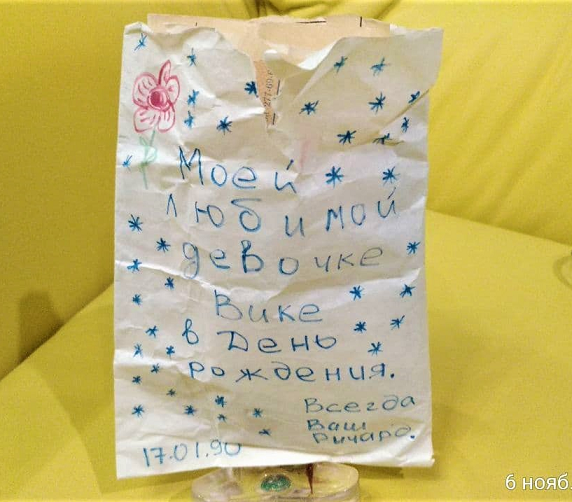 Моей
любимой
девочке
Вике
в День
рождения.
Всегда
Ваш
Ричард.
17.01.90
6 нояб.